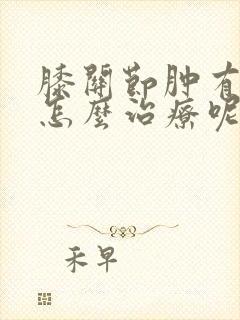 膝關節肿有
怎麼治療呢
禾早